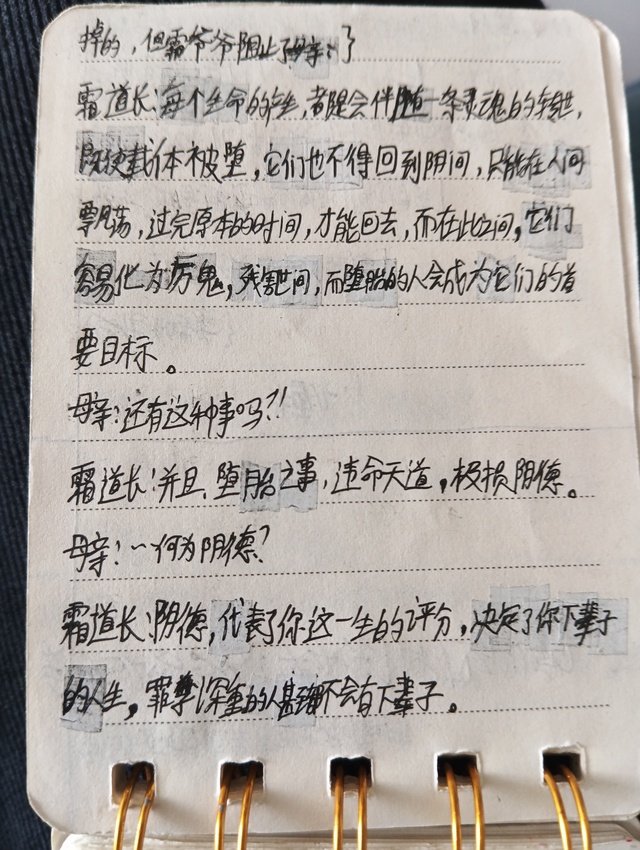 掉的，但霜爷爷阻止了母亲：了
霜道长：每个生命的产生，都是会伴随一条灵魂的转世，
既使载体被堕，它们也不得回到阴间，只能在人间
飘荡，过完原本的时间，才能回去，而在此之间，它们
容易化为厉鬼，残害世间，而堕胎的人会成为它们的首
要目标。
母亲：还有这种事吗？！
霜道长：并且、堕胎之事，违命天道，极损阴德。
母亲：～何为阴德？
霜道长：阴德，代表了你这一生的评分，决定了你下辈子
的人生，罪孽深重的人甚至不会有下辈子。